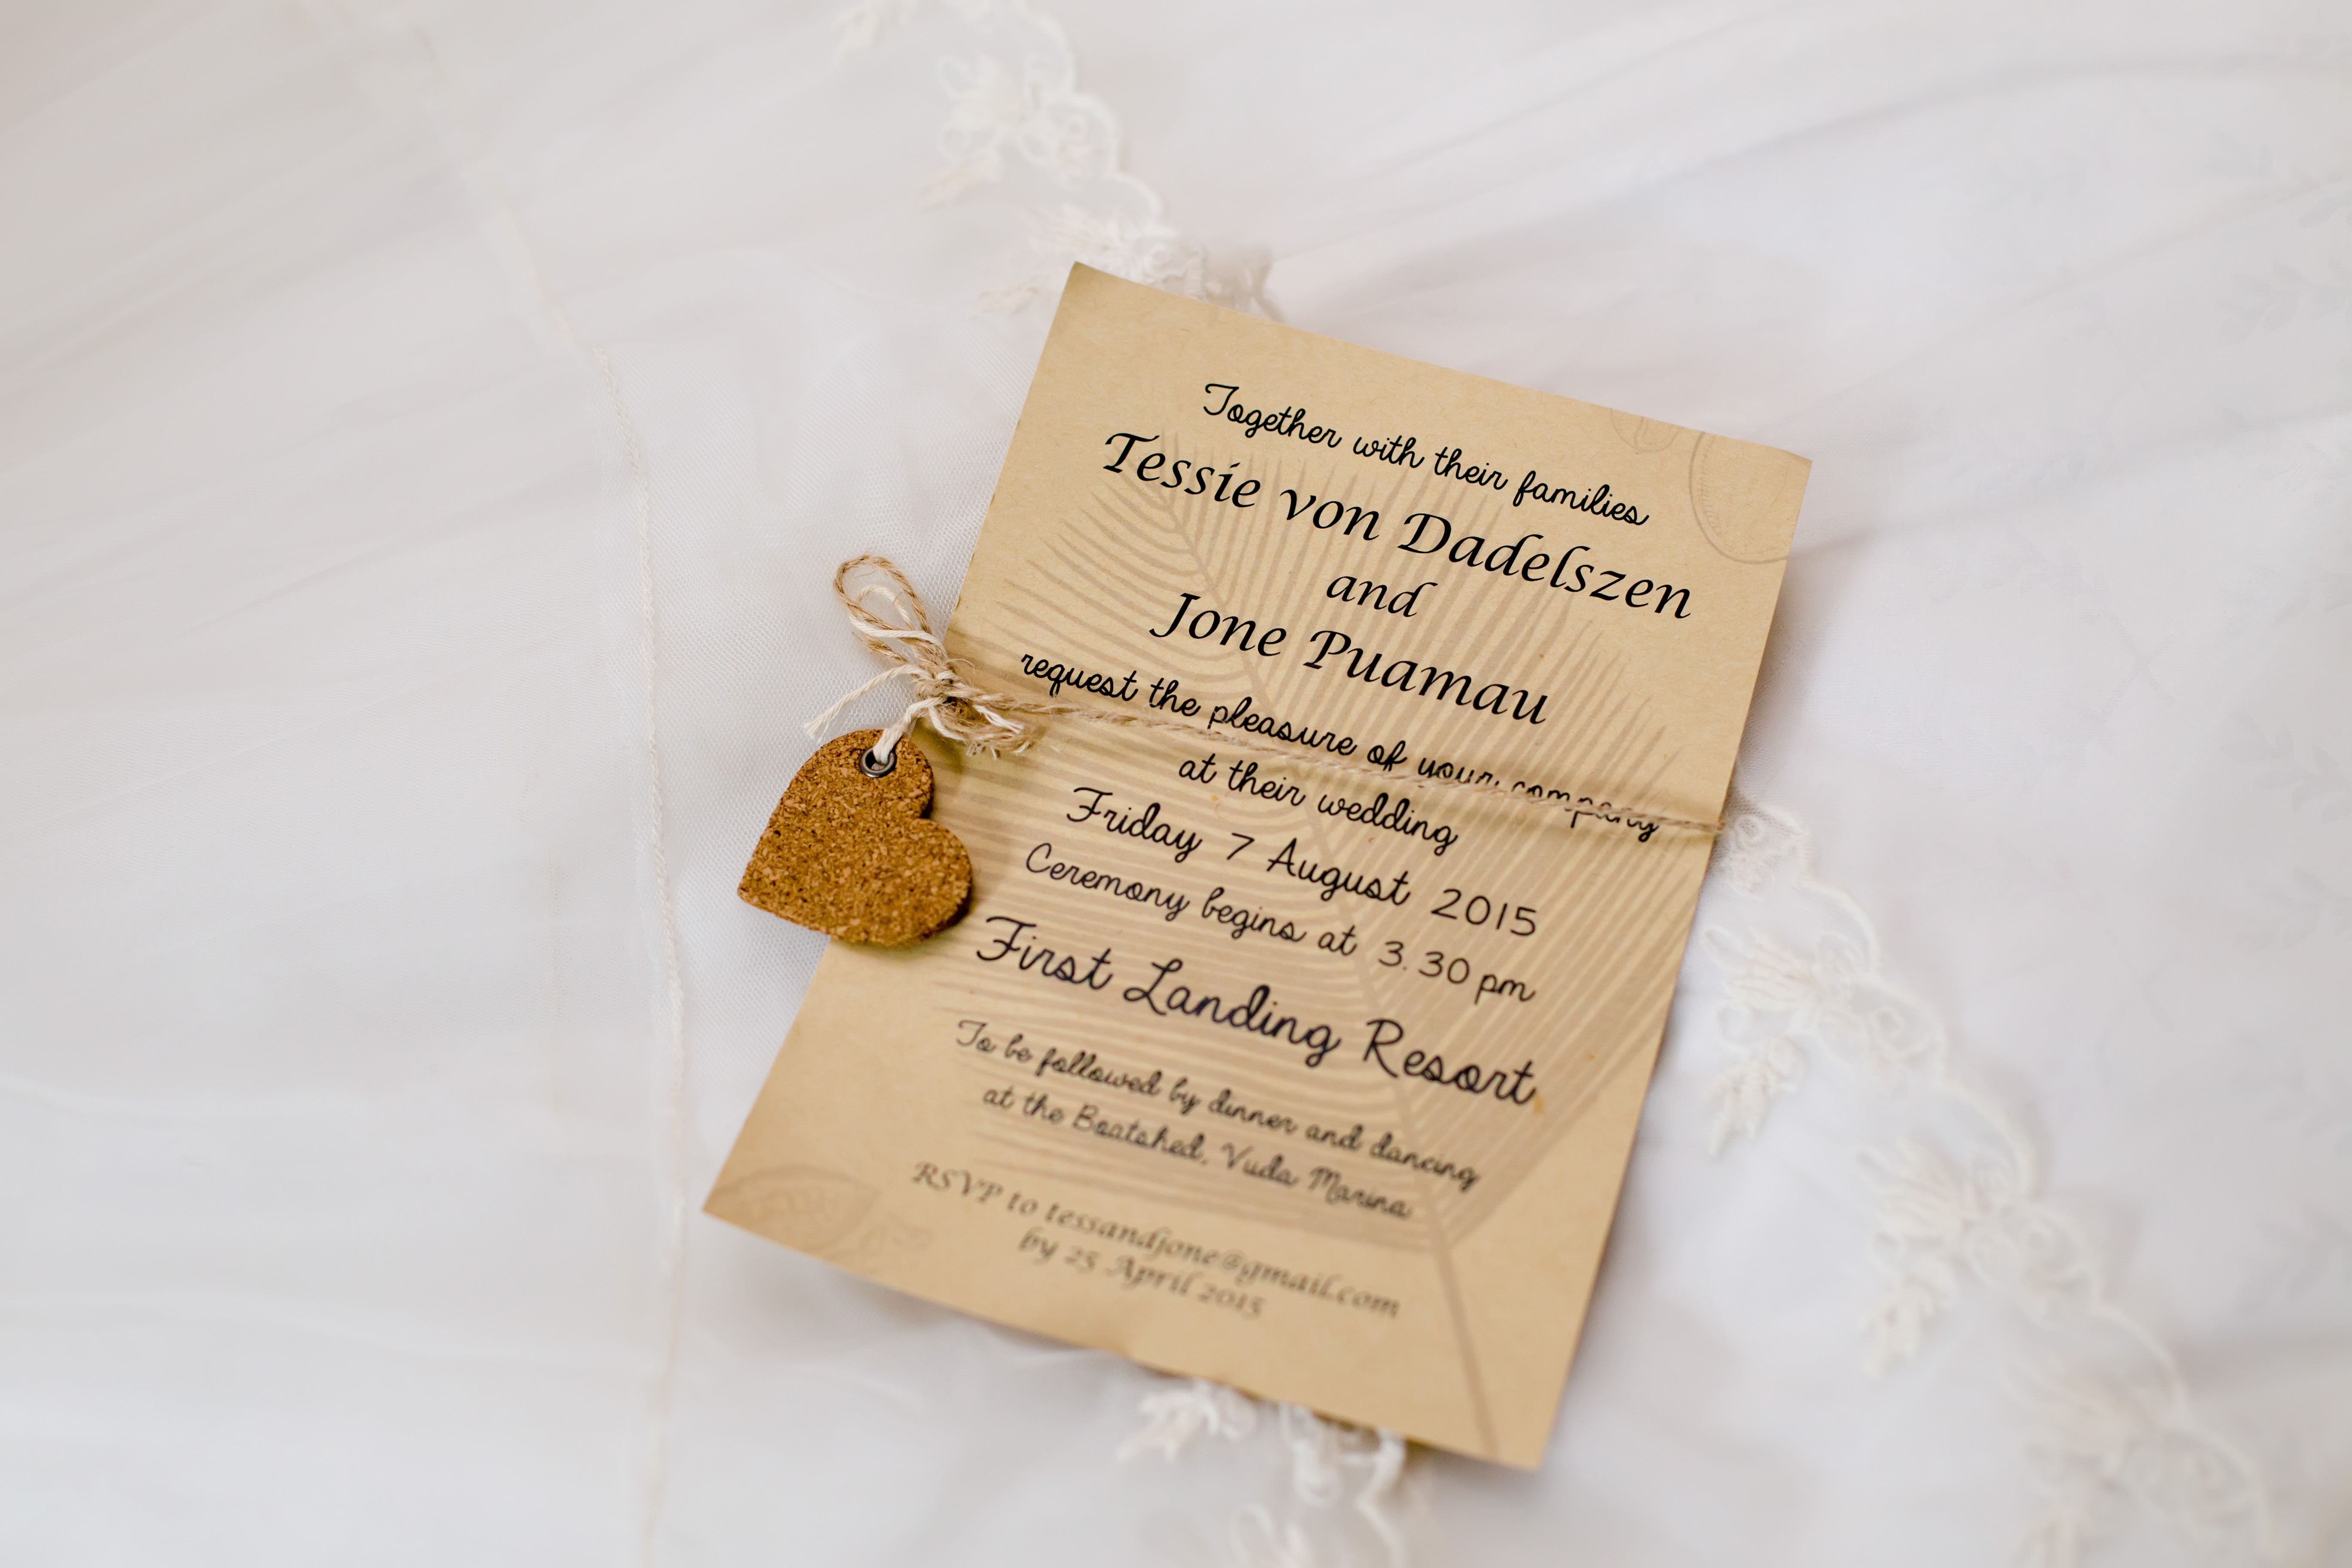 Together with their families
Tessie von Dadelszen
and
Jone Puamau
request the pleasure of your company
at their wedding
Friday 7 August 2015
Ceremony begins at 3.30 pm
First Landing Resort
To be followed by dinner and dancing
at the Boatshed, Vuda Marina
RSVP to tessandjone@gmail.com
by 25 April 2015